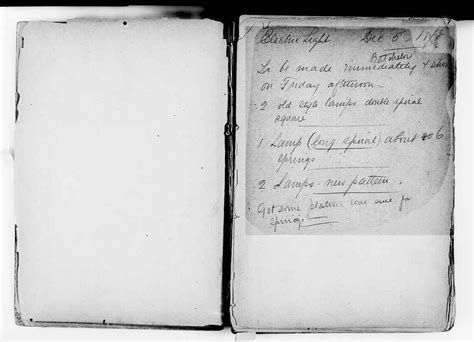 Electric Light Dec 5th 1878
Batchelor
To be made immediately &
on Friday afternoon -
2 old style lamps double spiral
square
1 Lamp (long spiral) about 6
springs
2 Lamps - new pattern.
Get some platina wire for
springs